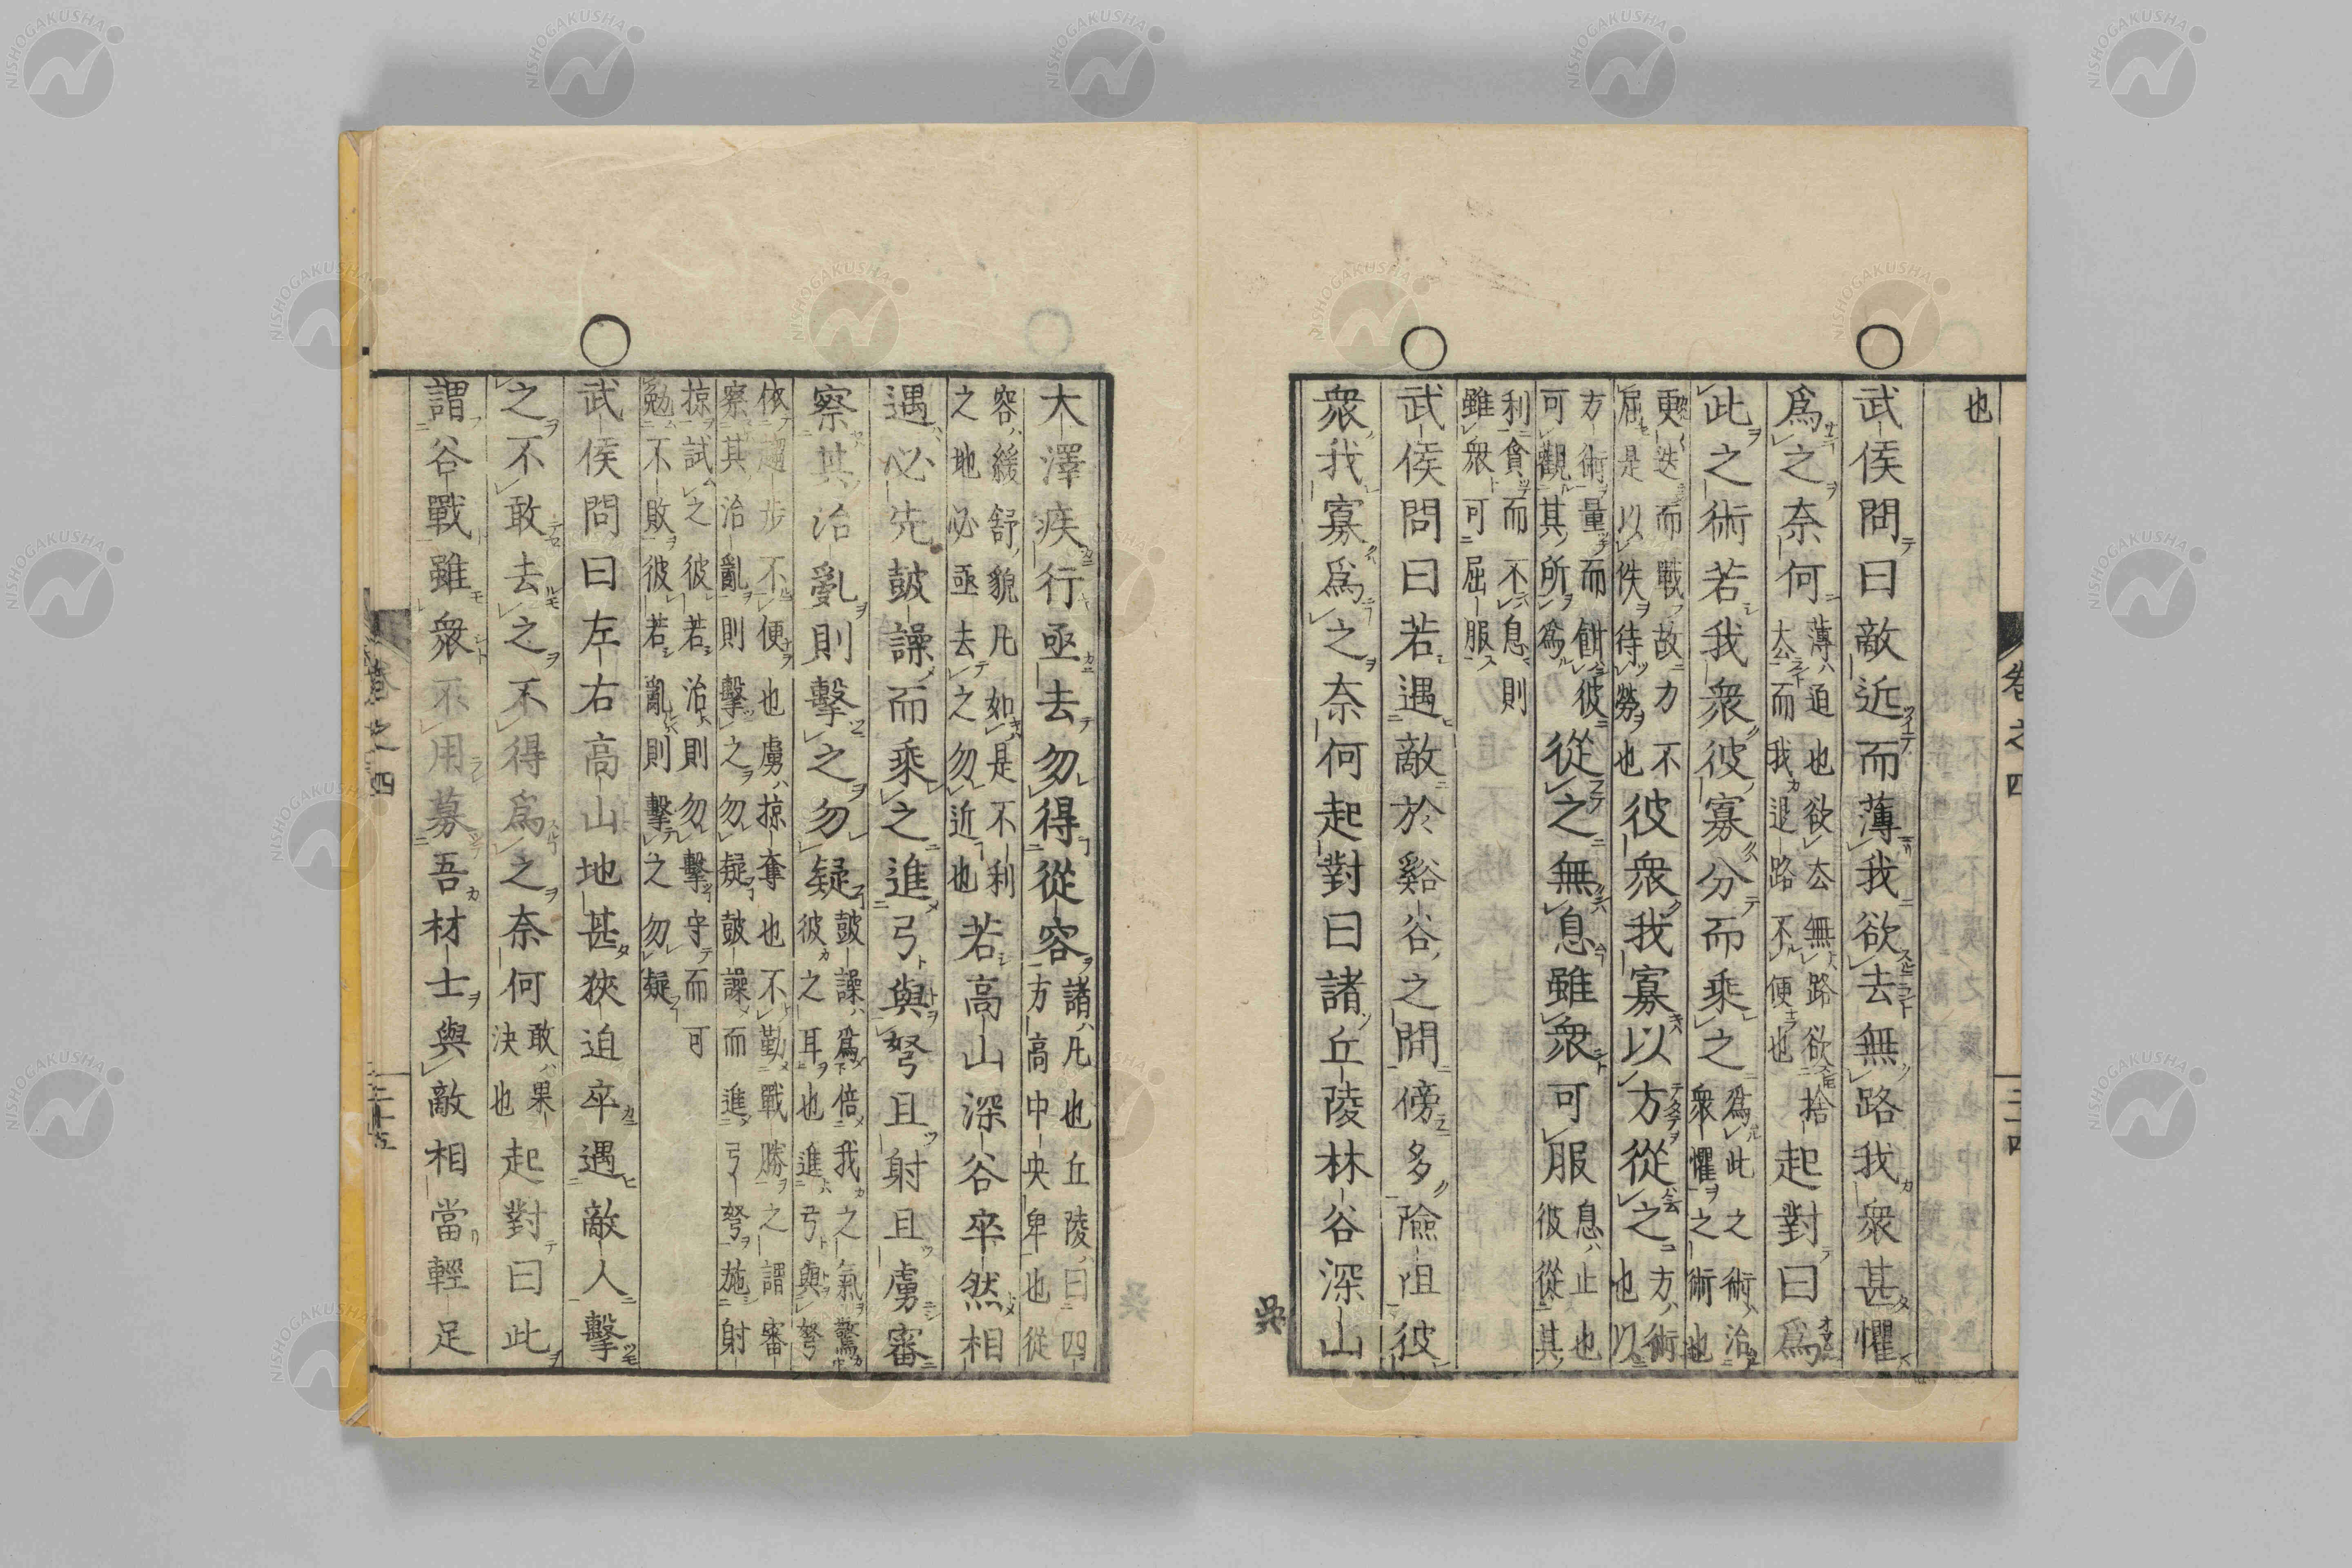 也
武侯問曰敵近而薄我欲去無路我衆甚懼
爲之奈何
薄ハ迫也欲去無路欲捨
去而我退路不便也
起對曰爲
此之術若我衆彼寡分而乘之
爲此之術ハ治
衆懼之術也
更迭而戰故力不
屈是以佚待勞也
彼衆我寡以方從之
方ハ術
也以
方術量而餌彼
可觀其所爲
從之無息雖衆可服
息ハ止也
彼從其
利貪而不息則
雖衆可屈服
武侯問曰若遇敵於谿谷之間傍多險阻彼
衆我寡爲之奈何起對曰諸丘陵林谷深山
吳
卷之四
大澤疾行亟去勿得從容
諸ハ凡也丘陵ハ曰四
方高中央卑也從
容ハ緩舒貌凡如是不利
之地必亟去之勿近也
若高山深谷卒然相
遇必先鼓譟而乘之進弓與弩且射且虜審
察其治亂則擊之勿疑
鼓譟ハ爲倍我之氣驚
彼之耳也進弓與弩
依趨步不便也虜ハ掠奪也不勤戰勝之謂審
察其治亂則擊之勿疑鼓譟而進弓弩施射
掠試之彼若治則勿擊守而可
勉不敗彼若亂則擊之勿疑
武侯問曰左右高山地甚狹迫卒遇敵人擊
之不敢去之不得爲之奈何
敢ハ果
決也
起對曰此
謂谷戰雖衆不用募吾材士與敵相當輕足
卷之四
三十五